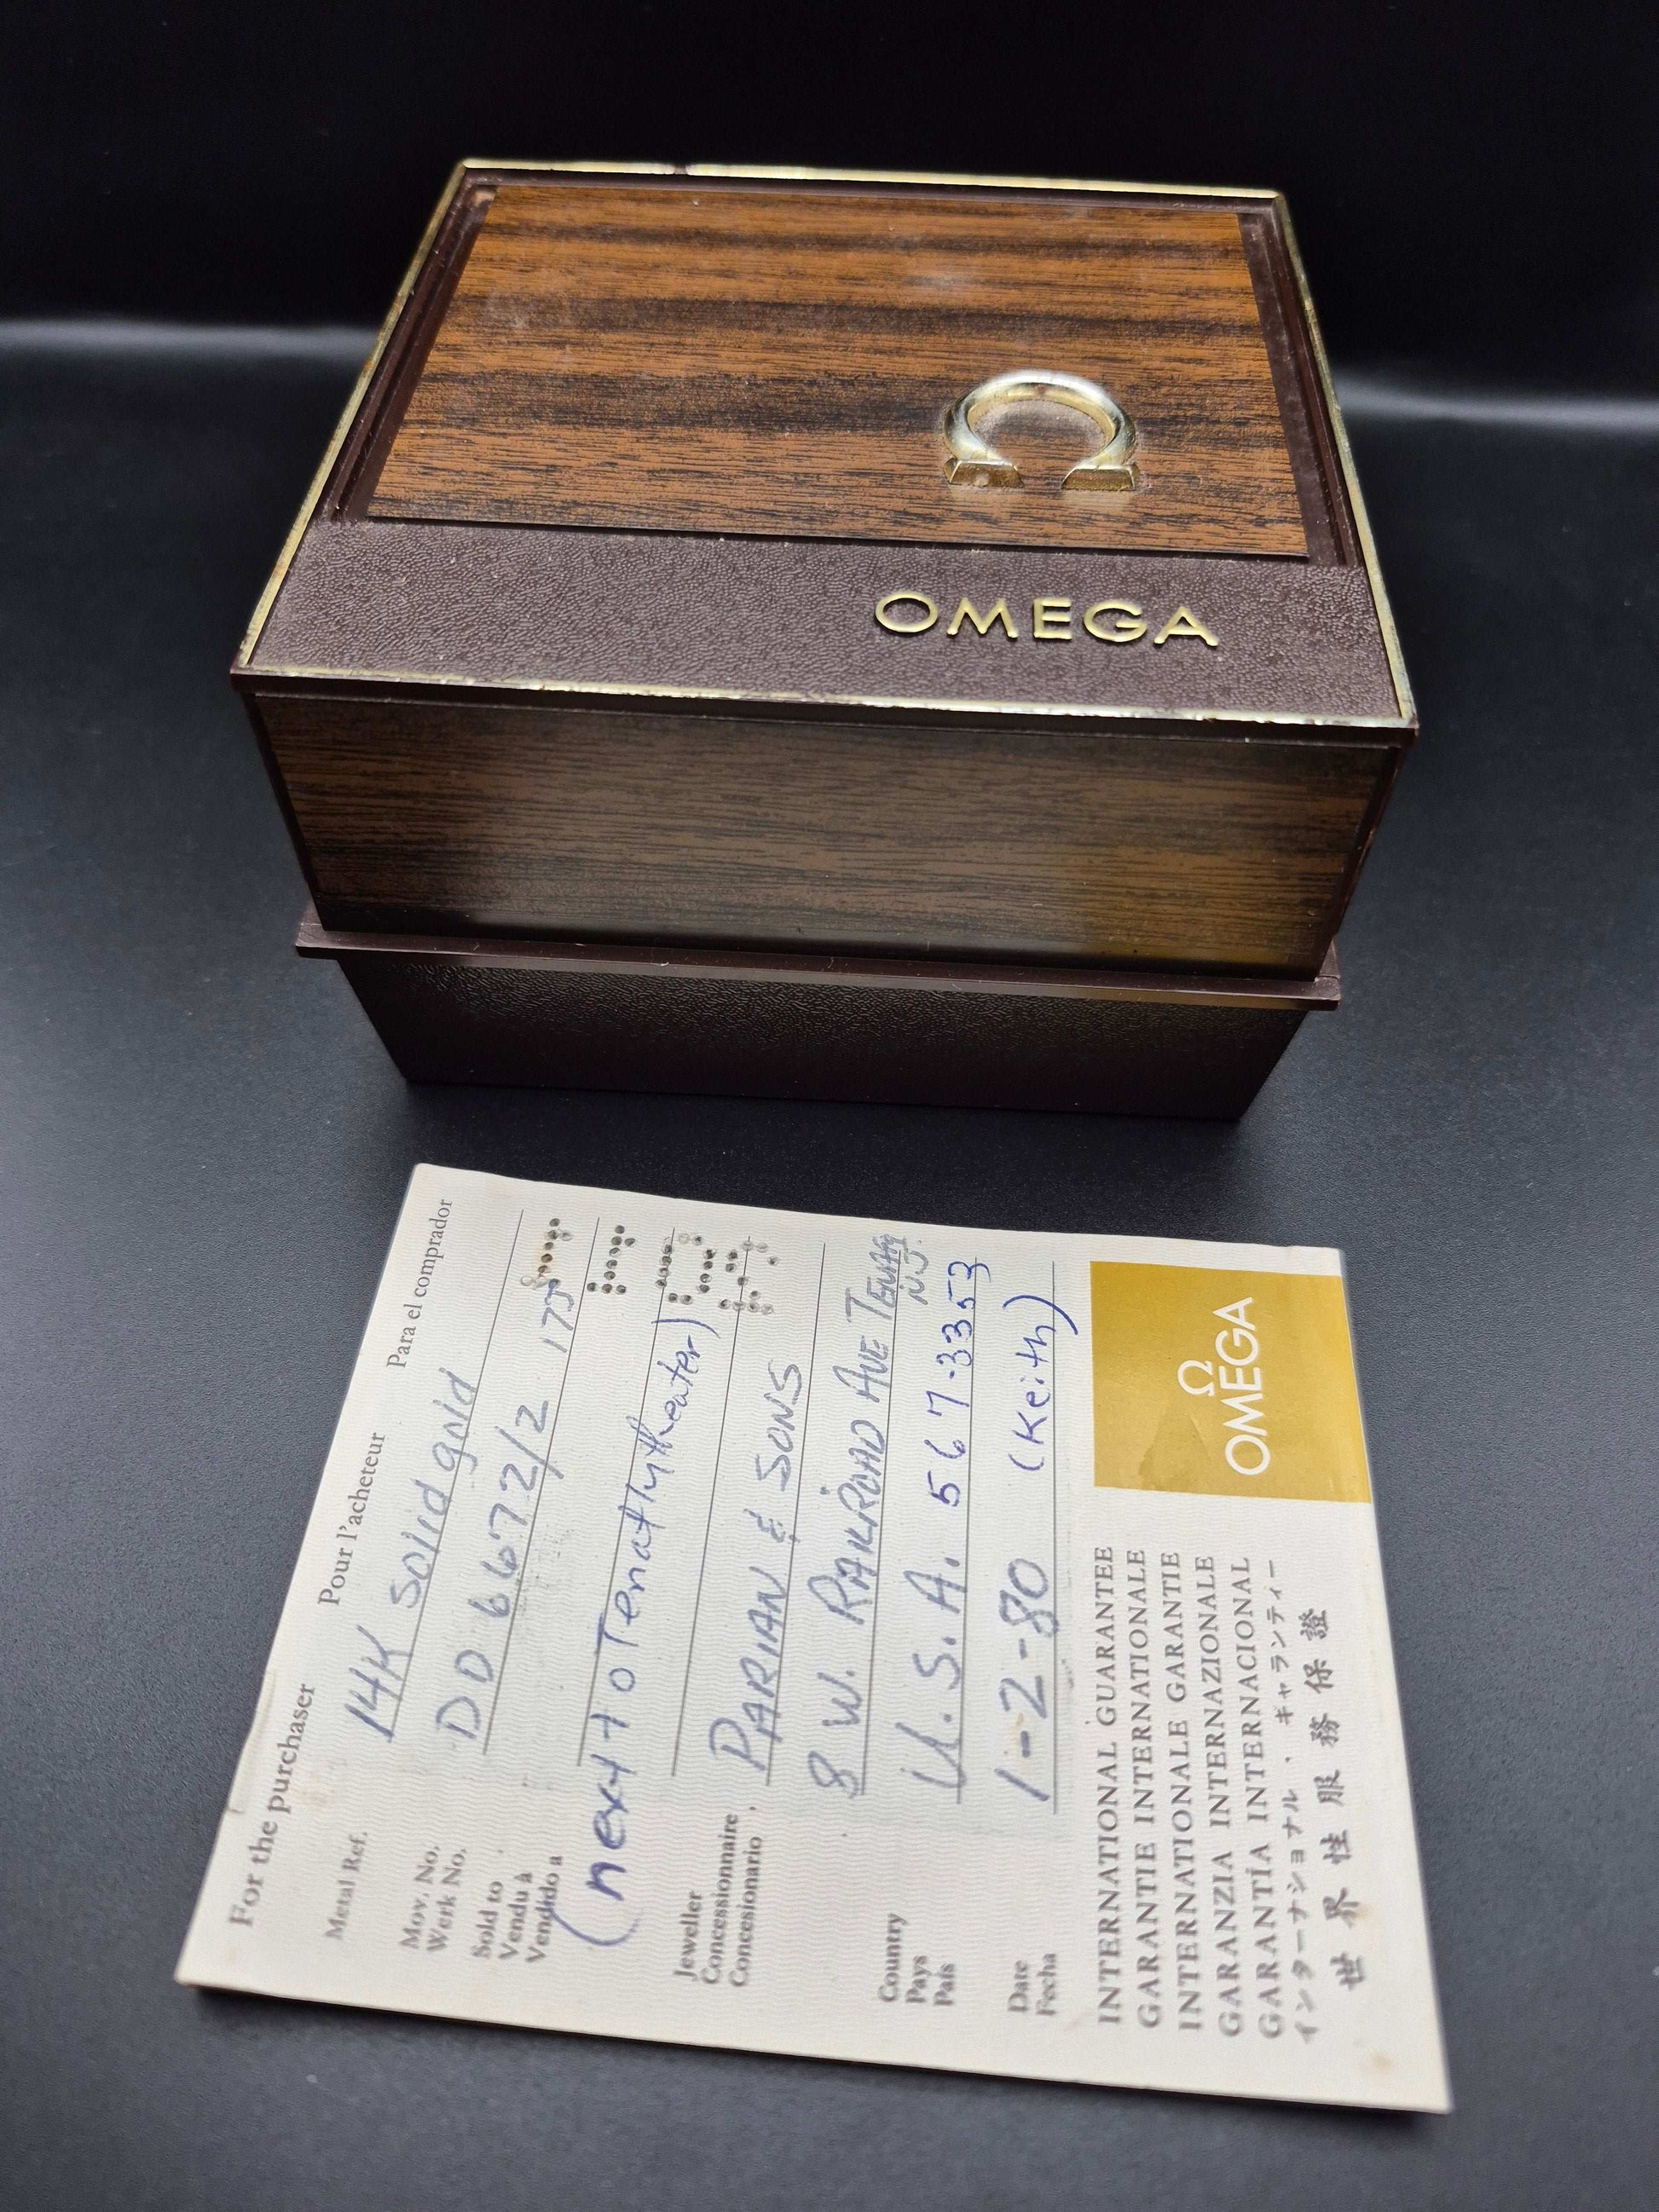 OMEGA
For the purchaser Pour l'acheteur Para el comprador
Metal Ref. 14K Solid gold
Mov. No.
Werk No.
DD 6672/2 17J
Sold to
Vendu à
Vendido a
(next to Tenafly theater)
Jeweller
Concessionnaire
Concesionario
PARIAN & SONS
8 W. RAILROAD AVE TENAFLY
N.J.
Country
Pays
País
U.S.A. 567-3353
Date
Fecha
1-2-80 (Keith)
INTERNATIONAL GUARANTEE
GARANTIE INTERNATIONALE
INTERNATIONALE GARANTIE
GARANZIA INTERNAZIONALE
GARANTÍA INTERNACIONAL
インターナショナル・ギャランティー
世界性服務保證
Ω
OMEGA